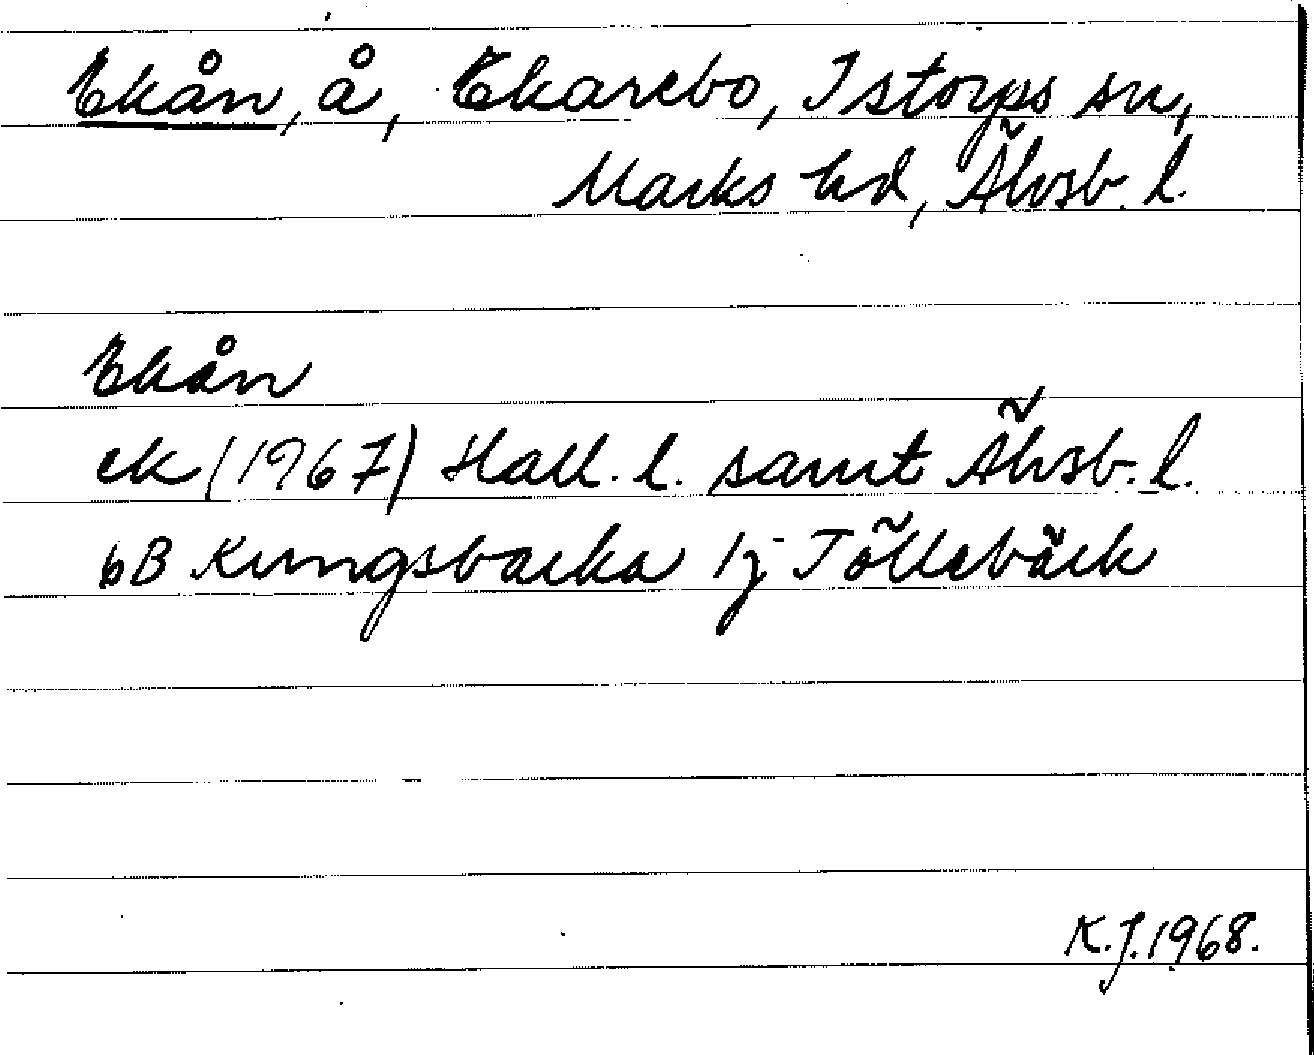 Ekån, å, Ekarebo, Istorps sn,
Marks hd, Älvsb. l.
Ekån
ek (1967) Hall. l. samt Älvsb. l.
6B Kungsbacka 1j Töllebäck
K.J. 1968.